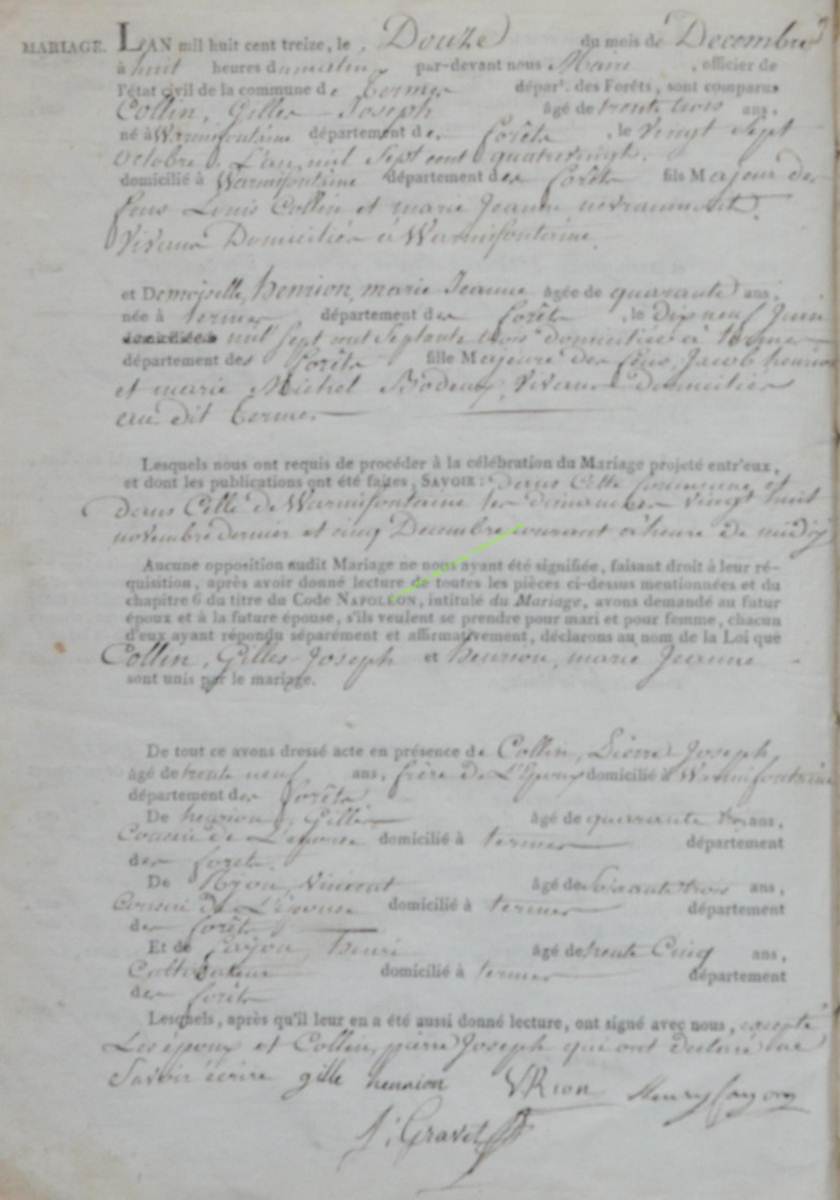 MARIAGE. LAN mil huit cent treize, le Douze du mois de Decembre
à huit heures du matin par-devant nous Maire, officier de
l'état civil de la commune de termes départ. des Forêts, sont comparus
Collin, Gilles Joseph âgé de trente trois ans,
né à Warmifontaine département des forêts, le vingt Sept
octobre, L'an mil Sept cent quatrevingt,
domicilié à Warmifontaine département des forêts fils Majeur des
feus Louis Collin et marie Jeanne
Vivans Domiciliés à Warmifontaine
et Demoiselle, henrion, marie Jeanne âgée de quarante ans,
née à termes département des forêts, le Dix neuf Juin
mil Sept cent Septante trois domiciliée à termes
département des forêts fille Majeure des feus Jacob henrion
et marie Michel Vivans domiciliés
au dit termes
Lesquels nous ont requis de procéder à la célébration du Mariage projeté entr'eux,
et dont les publications ont été faites, SAVOIR: dans Cette Commune et
dans Celle de Warmifontaine les dimanches vingt huit
novembre dernier et cinq Decembre courant à heure de midi
Aucune opposition audit Mariage ne nous ayant été signifiée, faisant droit à leur ré-
quisition, après avoir donné lecture de toutes les pièces ci-dessus mentionnées et du
chapitre 6 du titre du Code NAPOLÉON, intitulé du Mariage, avons demandé au futur
époux et à la future épouse, s'ils veulent se prendre pour mari et pour femme, chacun
d'eux ayant répondu séparément et affirmativement, déclarons au nom de la Loi que
Collin, Gilles Joseph et henrion, marie Jeanne
sont unis par le mariage.
De tout ce avons dressé acte en présence de Collin, Pierre Joseph,
âgé de trente neuf ans, frère de L'époux domicilié à Warmifontaine
département des forêts
De henrion, Gille âgé de quarante ans,
Cousin de L'épouse domicilié à termes département
des forêts.
De Rion, Vincent âgé de Soixante trois ans,
Cousin de L'épouse domicilié à termes département
des forêts
Et de henri âgé de trente Cinq ans,
Cultivateur domicilié à termes département
des forêts
Lesquels, après qu'il leur en a été aussi donné lecture, ont signé avec nous, excepté
Les époux et Collin, pierre Joseph qui ont declaré ne
Savoir écrire gille henrion VRion Henry
Gravet